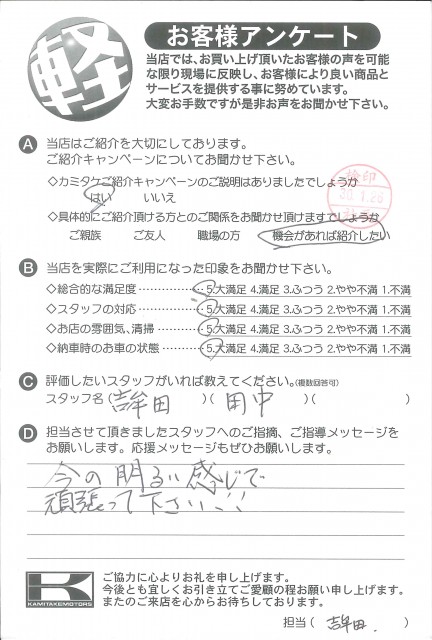 軽
お客様アンケート
当店では、お買い上げ頂いたお客様の声を可能
な限り現場に反映し、お客様により良い商品と
サービスを提供する事に努めています。
大変お手数ですが是非お声をお聞かせ下さい。
A 当店はご紹介を大切にしております。
ご紹介キャンペーンについてお聞かせ下さい。
◇カミタケご紹介キャンペーンのご説明はありましたでしょうか
はい いいえ
◇具体的にご紹介頂ける方とのご関係をお聞かせ頂けますでしょうか
ご親族 ご友人 職場の方 機会があれば紹介したい
B 当店を実際にご利用になった印象をお聞かせ下さい。
◇総合的な満足度 5.大満足 4.満足 3.ふつう 2.やや不満 1.不満
◇スタッフの対応 5.大満足 4.満足 3.ふつう 2.やや不満 1.不満
◇お店の雰囲気、清掃 5.大満足 4.満足 3.ふつう 2.やや不満 1.不満
◇納車時のお車の状態 5.大満足 4.満足 3.ふつう 2.やや不満 1.不満
C 評価したいスタッフがいれば教えてください。(複数回答可)
スタッフ名(吉牟田)(田中)( )
D 担当させて頂きましたスタッフへのご指摘、ご指導メッセージを
お願いします。応援メッセージもぜひお願いします。
今の明るい感じで
頑張って下さい!!
K
KAMITAKEMOTORS
ご協力に心よりお礼を申し上げます。
今後とも宜しくお引き立てご愛顧の程お願い申し上げます。
またのご来店を心からお待ちしております。
担当(吉牟田.)